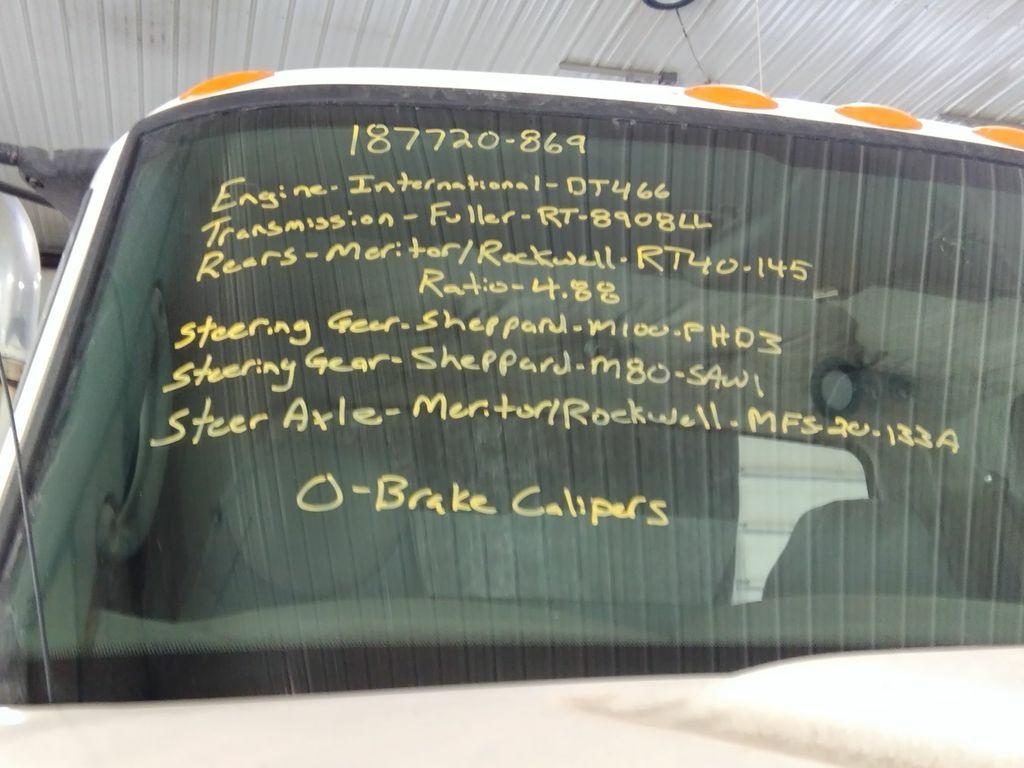 187720-869
Engine-International-DT466
Transmission-Fuller-RT-8908LL
Rears-Meritor/Rockwell-RT40-145
Ratio-4.88
Steering Gear-Sheppard-M100-PHD3
Steering Gear-Sheppard-M80-SAW1
Steer Axle-Meritor/Rockwell-MFS-20-133A
0-Brake Calipers